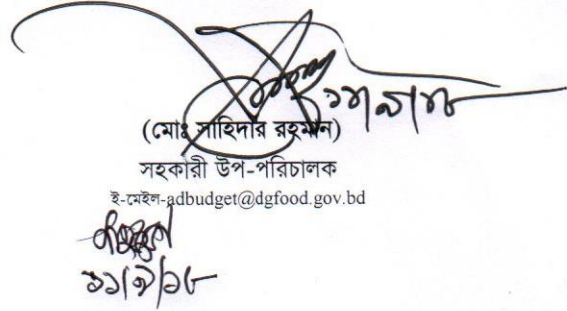 (মোঃ সাহিদার রহমান)
সহকারী উপ-পরিচালক
ই-মেইল-adbudget@dgfood.gov.bd
১১/৯/১৮